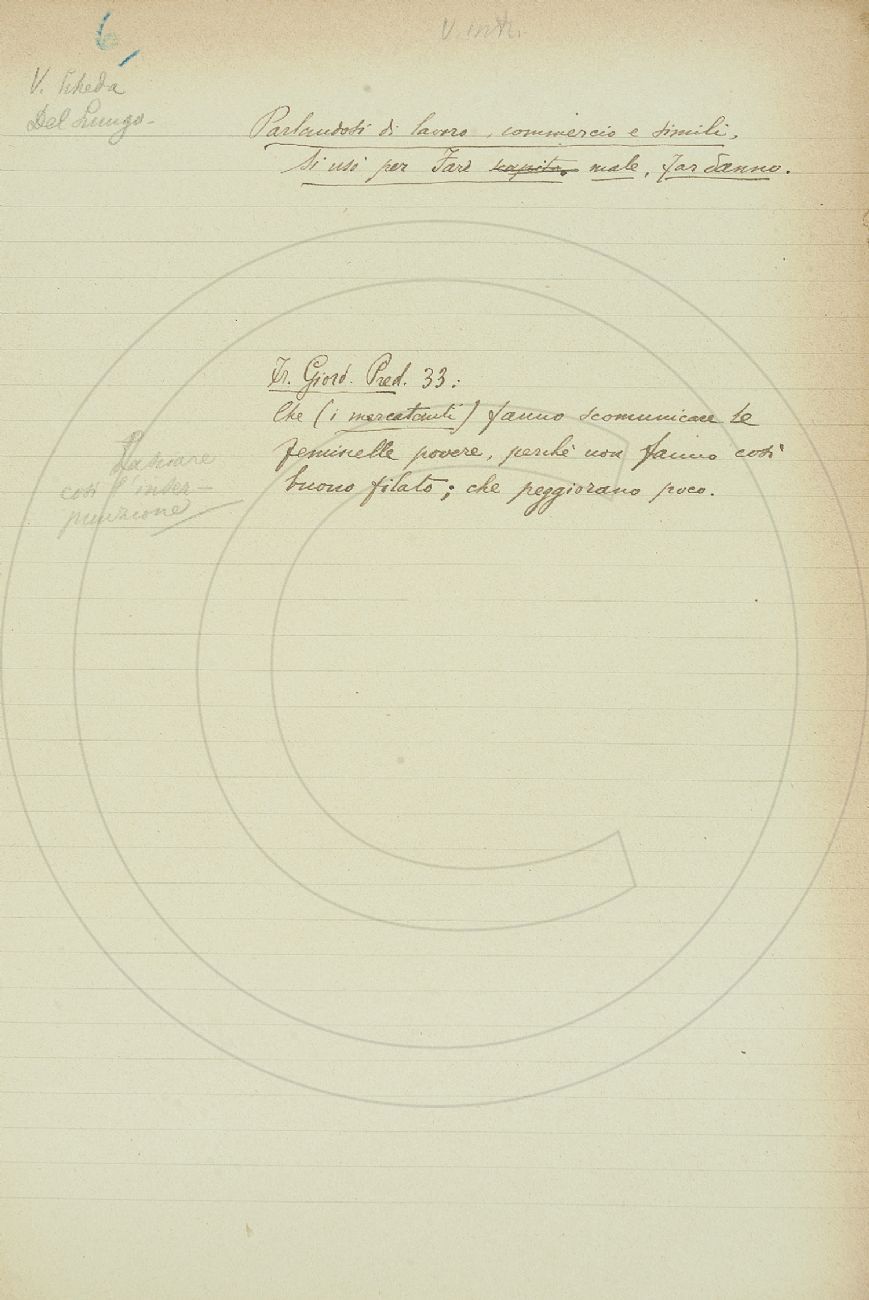 6
V. intr.
V. scheda
Del Lungo.
Parlandosi di lavoro, commercio e simili,
si usò per Fare scapito. male, far danno.
Fr. Giord. Pred. 33:
Che (i mercatanti) fanno scomunicare le
feminelle povere, perchè non fanno così
buono filato; che peggiorano poco.
Lasciare
così l'inter-
punzione